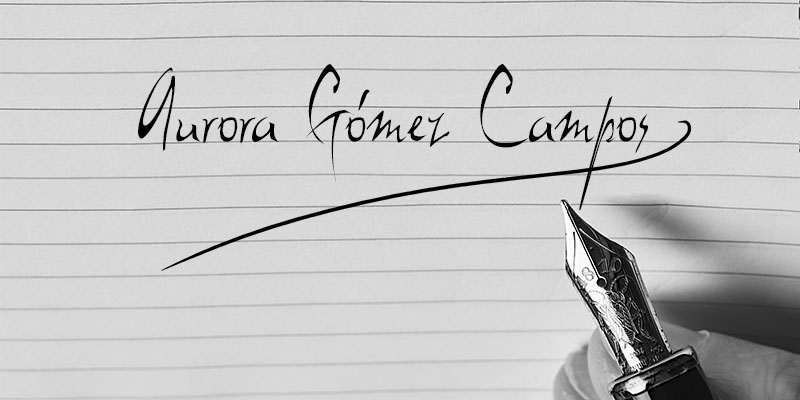 Aurora Gómez Campos